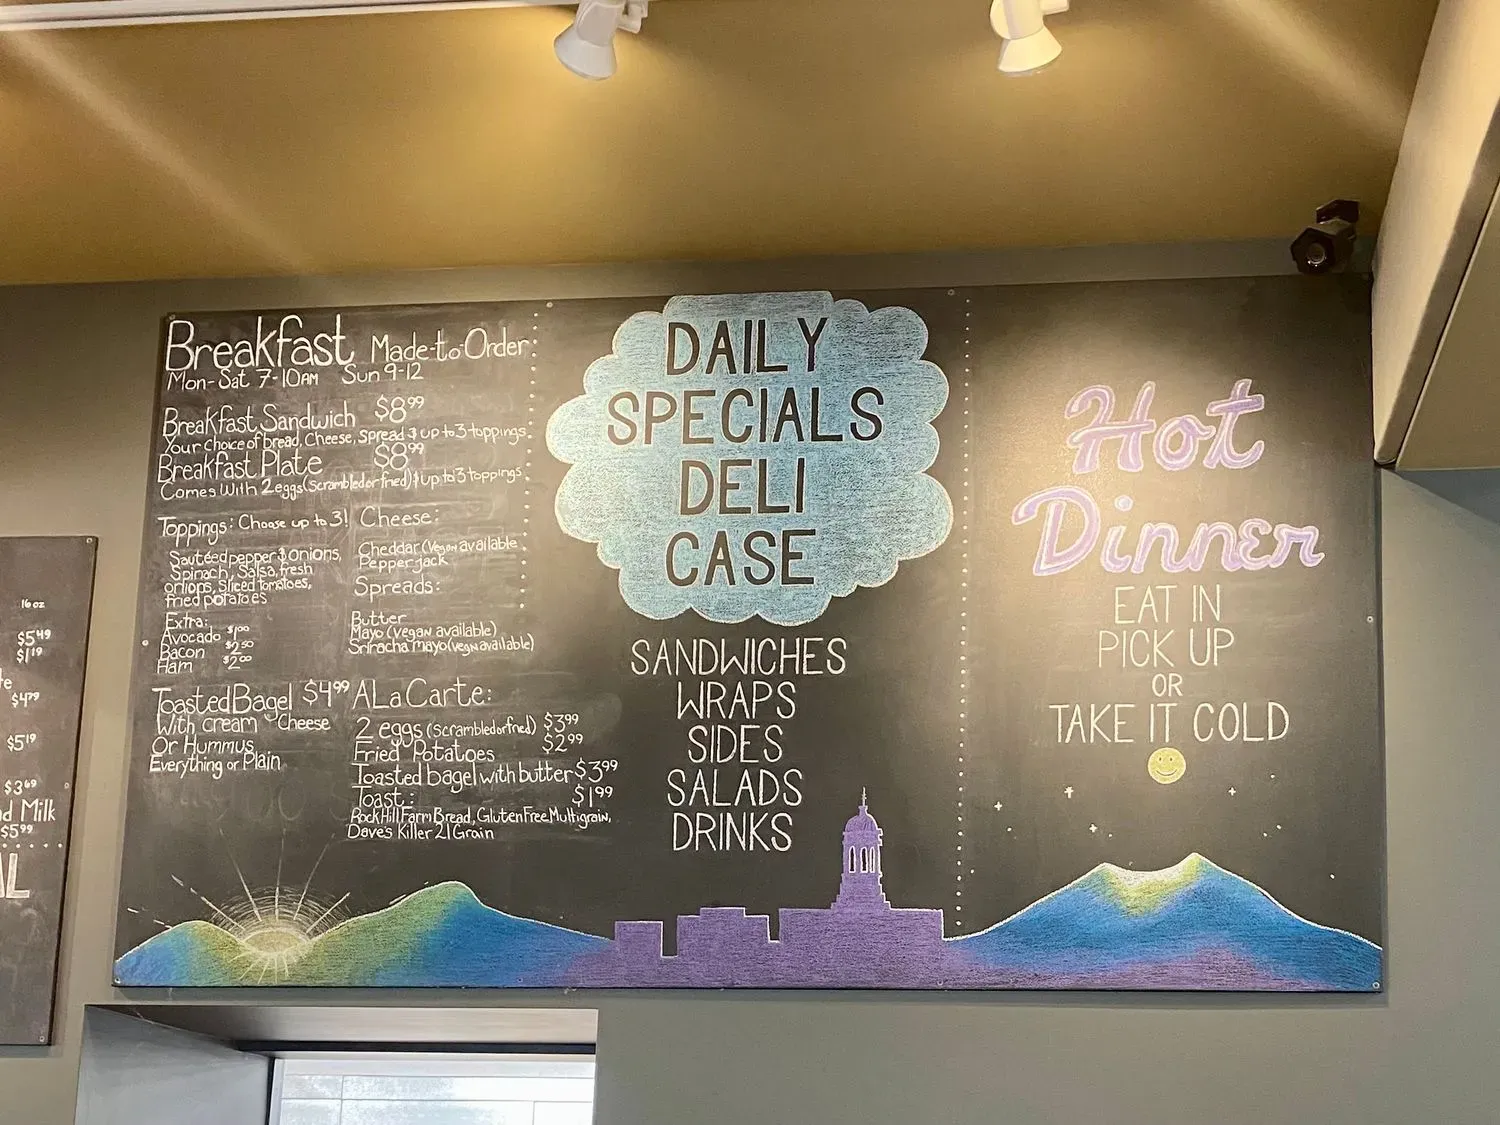 16 oz
$5.49
$1.19
$4.79
$5.19
$3.69
d Milk
$5.99
AL
Breakfast Made-to-Order:
Mon-Sat 7-10AM Sun 9-12
Breakfast Sandwich $8.99
Your choice of bread, Cheese, Spread & up to 3 toppings.
Breakfast Plate $8.99
Comes With 2 eggs (Scrambled or fried) & up to 3 toppings
Toppings: Choose up to 3!
Sautéed pepper & onions,
Spinach, Salsa, fresh
onions, Sliced tomatoes,
fried potatoes
Extra:
Avocado $1.00
Bacon $2.50
Ham $2.00
Cheese:
Cheddar (Vegan available
Pepper jack
Spreads:
Butter
Mayo (vegan available)
Sriracha mayo (vegan available)
Toasted Bagel $4.99
With cream Cheese
Or Hummus
Everything or Plain
A La Carte:
2 eggs (scrambled or fried) $3.99
Fried Potatoes $2.99
Toasted bagel with butter $3.99
Toast: $1.99
Rock Hill Farm Bread, Gluten Free Multigrain,
Dave's Killer 21 Grain
DAILY
SPECIALS
DELI
CASE
SANDWICHES
WRAPS
SIDES
SALADS
DRINKS
Hot
Dinner
EAT IN
PICK UP
OR
TAKE IT COLD